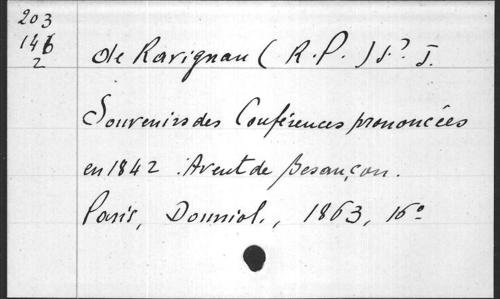 203
146
2
de Ravignan ( R. P. ) s. J.
Souvenirs des Conférences prononcées
en 1842 . Avent de Besançon.
Paris, Douniol., 1863, 16º